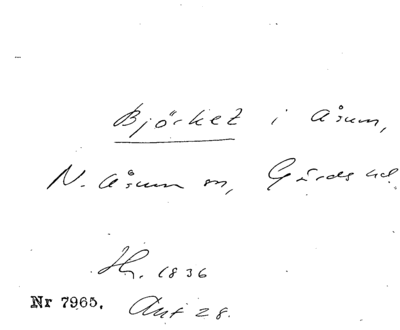 Björket i Åsum,
N. Åsum sn, Gärds hd.
Hr. 1836
Nr 7965. Ant 28.